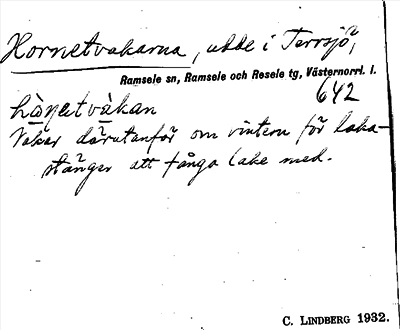 Hornetvakarna, udde i Terrsjö,
Ramsele sn, Ramsele och Resele tg, Västernorrl. l.
642
hå̀ṇetvàkan
Vakar därutanför om vintern för laka-
stänger att fånga lake med.
C. LINDBERG 1932.